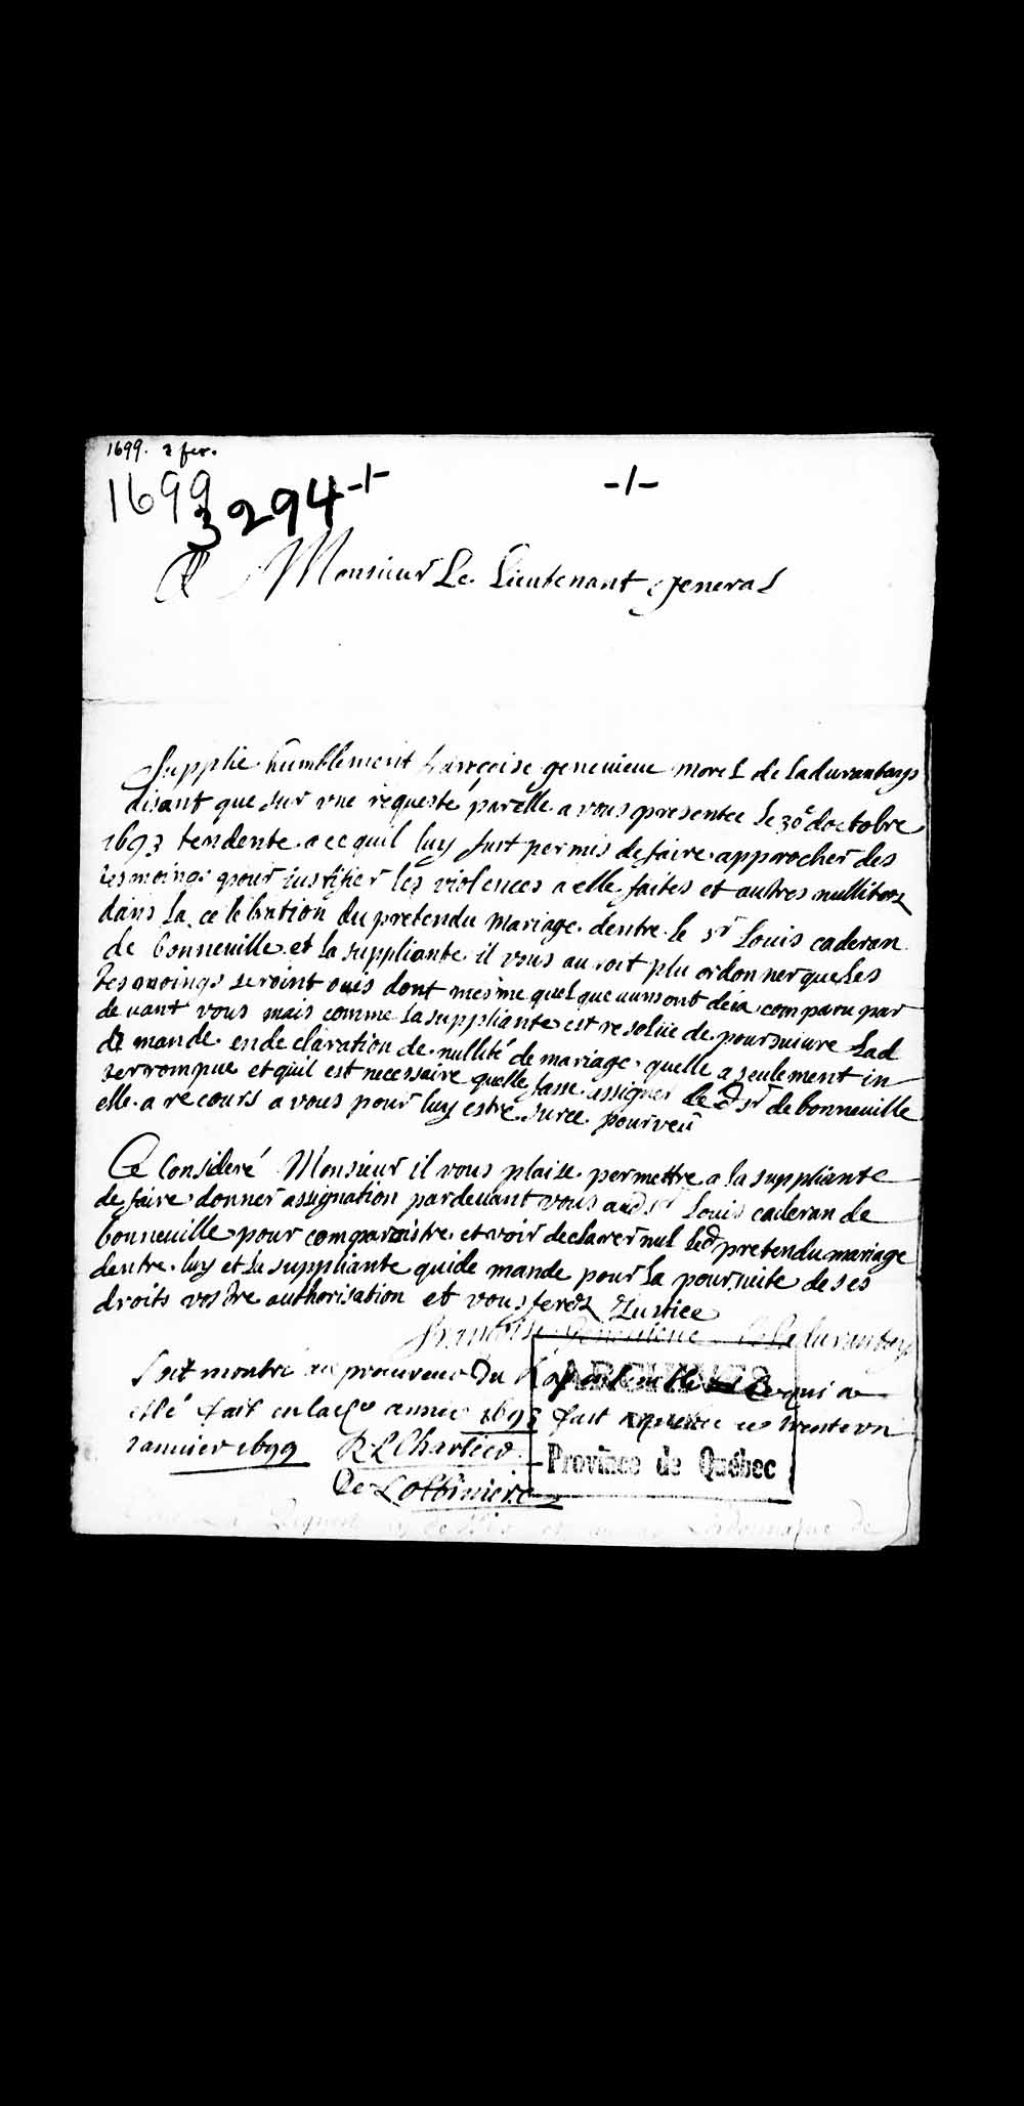 1699. 2 fev.
1699
3294 -1-
-1-
A Monsieur Le Lieutenant general
Supplie humblement françoise genevieve morel de ladurantays
disant que sur une requeste par elle a vous presentee le 30e doctobre
1693 tendente a ce quil luy fust permis de faire approcher des
tesmoings pour justifier les violences a elle faites et autres nullitez
dans la celebration du pretendu mariage dentre le sr Louis caderan
de bonneuille et la suppliante il vous auroit plu ordonner que les
tesmoings seroint ouis dont mesme quelque uns ont deia comparu par
deuant vous mais comme la suppliante est resolüe de poursuiure Lad
demande en declaration de nullité de mariage quelle a seulement in
terrompue et quil est necessaire quelle fasse assigner le d sr de bonneuille
elle a recours a vous pour luy estre surce pourveu
Ce Consideré Monsieur il vous plaise permettre a la suppliante
de faire donner assignation pardeuant vous aud sr Louis caderan de
bonneuille pour comparoistre et voir declarer nul led pretendu mariage
dentre luy et la suppliante qui demande pour la poursuite de ses
droits vostre authorisation et vous ferez Justice
françoise Geneuieue de la durantays
Soit montré au procureur Du Roy ce qui a
esté fait en lad annee 1693 fait a ce trente vn
Januier 1699 R L Chartier
De Lotbiniere
ARCHIVES
Province de Québec